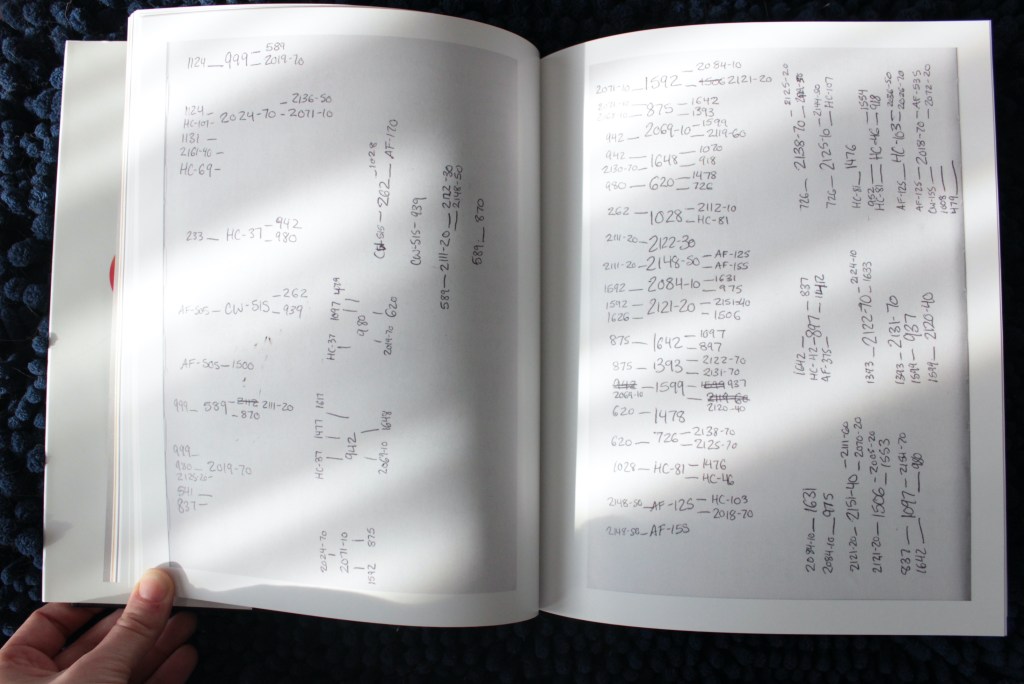 589
1124 — 999 — 2019-70
2136-50
1124 —
HC-107 — 2024-70 — 2071-10
1131 —
2161-40 —
HC-69 —
942
233 — HC-37 — 980
262
AF-505 — CW-515 — 939
AF-505 — 1500
999 — 589 — 2112 2111-20
— 870
999 —
980 — 2019-70
2125-20 —
541 —
837 —
CW-515 — 262 — 1028
AF-170
CW-515 — 939
589 — 2111-20 — 2122-30
2148-50
589 — 870
HC-37 1097 479
980
2019-70 620
HC-37 1477 1617
942
2069-10 1648
2024-70
2071-10
1592 875
2084-10
2071-10 — 1592 — 1506 2121-20
875 — 1642
1393
942 — 2069-10 — 1599
2119-60
942 — 1070
2130-70 — 1648 — 918
980 — 620 — 1478
726
262 — 1028 — 2112-10
HC-81
2111-20 — 2122-30
2111-20 — 2148-50 — AF-125
AF-155
1592 — 2084-10 — 1631
975
1592 — 2121-20 — 2151-40
1626 — 1506
875 — 1642 — 1097
897
875 — 1393 — 2122-70
2131-70
942
2069-10 — 1599 — 1699 937
2119-60
2120-40
620 — 1478
620 — 726 — 2138-70
2125-70
1028 — HC-81 — 1476
HC-46
2148-50 — AF-125 — HC-103
2018-70
2148-50 — AF-155
726 — 2138-70 — 2125-20
726 — 2125-10 — 2144-50
HC-107
HC-81 — 1476
HC-81 — HC-46 — 1554
918
AF-125 — HC-103 — 2136-50
2026-70
AF-125 — 2018-70 — AF-535
CW-155 — 2072-20
1008
479
1642 — 897 — 837
HC-112 — 1412
AF-375 —
1393 — 2122-70 — 2124-10
1633
1393 — 2131-70
1599 — 937
1599 — 2120-40
2084-10 — 1631
2084-10 — 975
2121-20 — 2151-40 — 2111-60
2070-20
2121-20 — 1506 — 2005-20
1553
837 — 1097 — 2151-70
1642 — 980